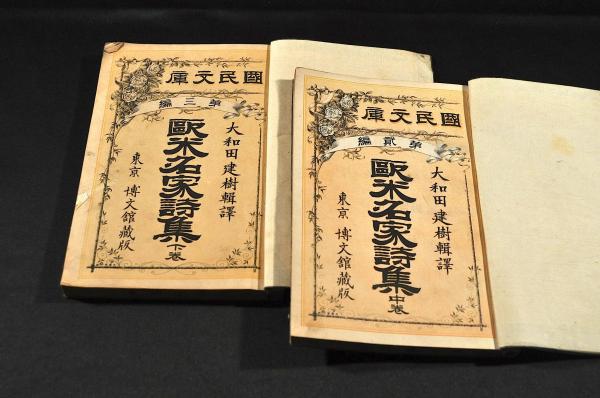 國民文庫
第三編
大和田建樹輯譯
歐米名家詩集 下卷
東京 博文館藏版
國民文庫
第貳編
大和田建樹輯譯
歐米名家詩集 中卷
東京 博文館藏版